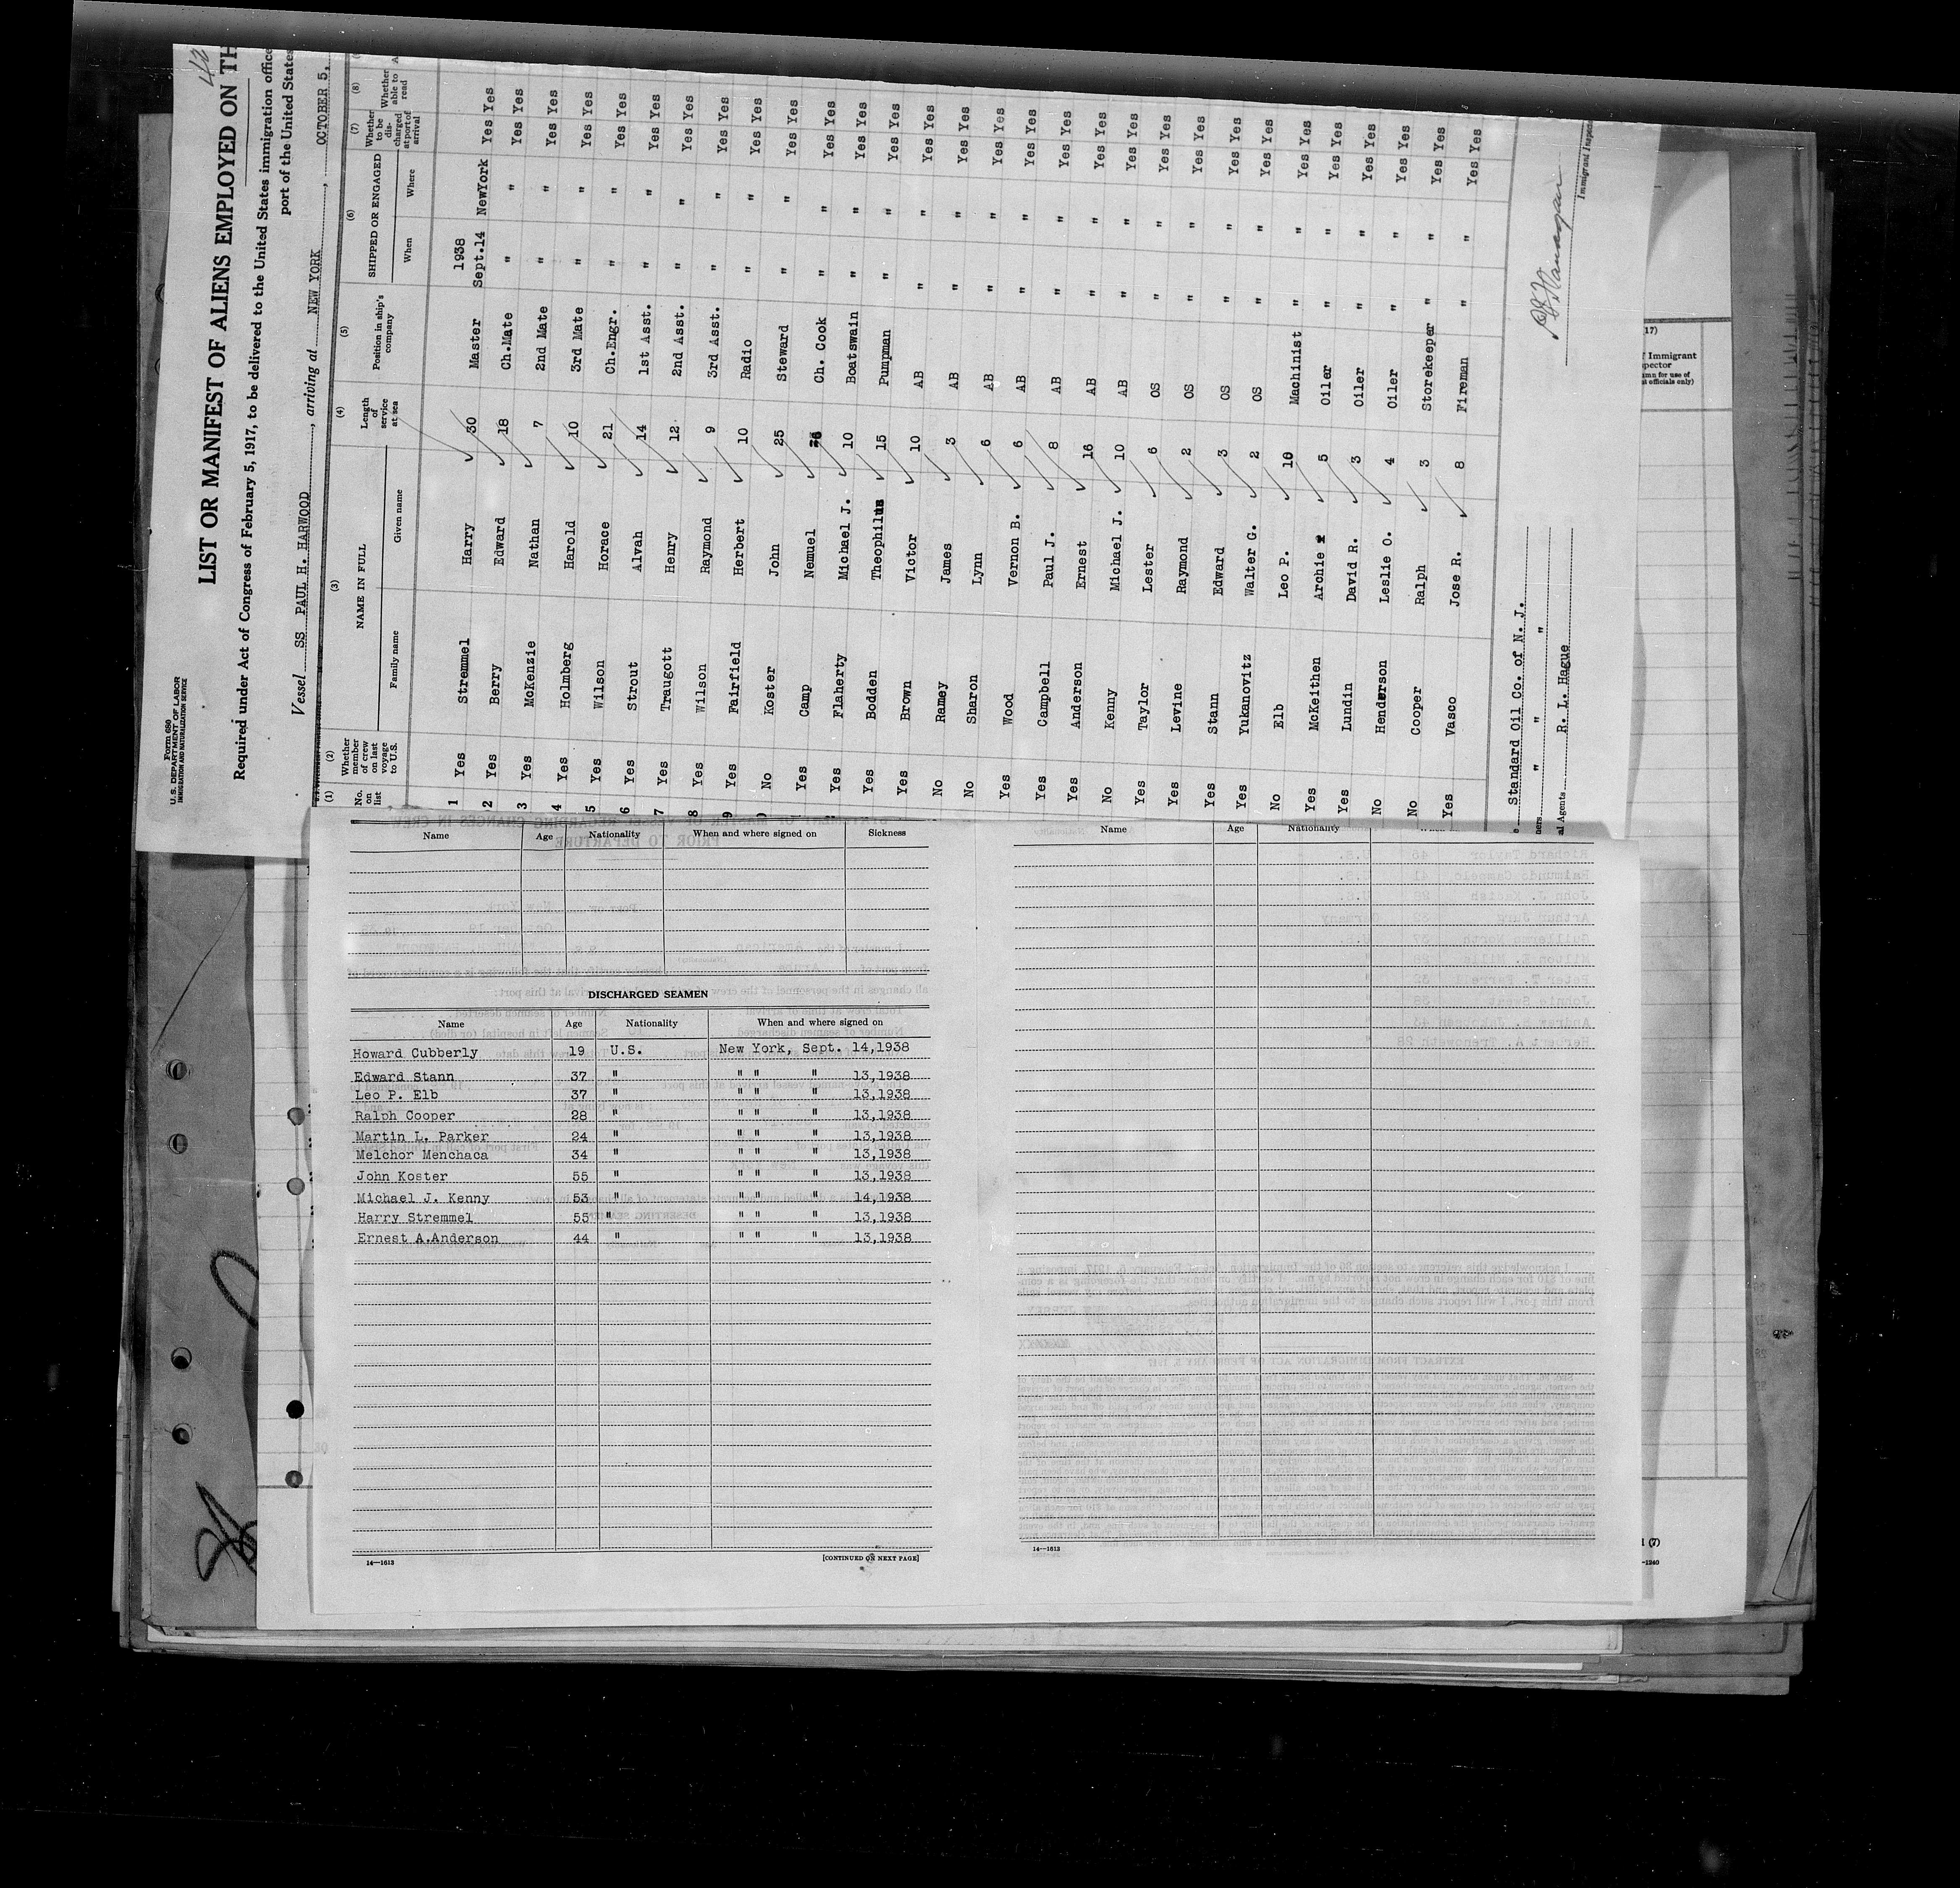 42
Form 689
U. S. DEPARTMENT OF LABOR
IMMIGRATION AND NATURALIZATION SERVICE
LIST OR MANIFEST OF ALIENS EMPLOYED ON TH
Required under Act of Congress of February 5, 1917, to be delivered to the United States immigration office
port of the United States
Vessel SS PAUL H. HARWOOD, arriving at NEW YORK, OCTOBER 5,
(1) (2) (3) (4) (5) (6) (7) (8)
No. on list Whether member of crew on last voyage to U.S. NAME IN FULL Family name Given name Length of service at sea Position in ship's company SHIPPED OR ENGAGED When Where Whether to be discharged at port of arrival Whether able to read
1938
1 Yes Stremmel Harry 30 Master Sept.14 NewYork Yes Yes
2 Yes Berry Edward 18 Ch.Mate " " Yes Yes
3 Yes McKenzie Nathan 7 2nd Mate " " Yes Yes
4 Yes Holmberg Harold 10 3rd Mate " " Yes Yes
5 Yes Wilson Horace 21 Ch.Engr. " " Yes Yes
6 Yes Strout Alvah 14 1st Asst. " " Yes Yes
7 Yes Traugott Henry 12 2nd Asst. " " Yes Yes
8 Yes Wilson Raymond 9 3rd Asst. " " Yes Yes
9 Yes Fairfield Herbert 10 Radio " " Yes Yes
No Koster John 25 Steward " " Yes Yes
Yes Camp Nemuel Ch. Cook " " Yes Yes
Yes Flaherty Michael J. 10 Boatswain " " Yes Yes
Yes Bodden Theophilus 15 Pumpman " " Yes Yes
Yes Brown Victor 10 AB " " Yes Yes
No Ramey James 3 AB " " Yes Yes
No Sharon Lynn 6 AB " " Yes Yes
Yes Wood Vernon B. 6 AB " " Yes Yes
Yes Campbell Paul J. 8 AB " " Yes Yes
Yes Anderson Ernest 16 AB " " Yes Yes
No Kenny Michael J. 10 AB " " Yes Yes
Yes Taylor Lester 6 OS " " Yes Yes
Yes Levine Raymond 2 OS " " Yes Yes
Yes Stann Edward 3 OS " " Yes Yes
Yes Yukanovitz Walter G. 2 OS " " Yes Yes
No Elb Leo P. 10 Machinist " " Yes Yes
Yes McKeithen Archie 5 Oiler " " Yes Yes
Yes Lundin David R. 3 Oiler " " Yes Yes
No Henderson Leslie O. 4 Oiler " " Yes Yes
No Cooper Ralph 3 Storekeeper " " Yes Yes
Yes Vasco Jose R. 8 Fireman " " Yes Yes
Standard Oil Co. of N. J.
ners " " "
al Agents R. L. Hague
Immigrant Inspec
17)
f Immigrant
pector
umn for use of
t officials only)
Name Age Nationality When and where signed on Sickness
DISCHARGED SEAMEN
Name Age Nationality When and where signed on
Howard Cubberly 19 U.S. New York, Sept. 14,1938
Edward Stann 37 " " " " 13,1938
Leo P. Elb 37 " " " " 13,1938
Ralph Cooper 28 " " " " 13,1938
Martin L. Parker 24 " " " " 13,1938
Melchor Menchaca 34 " " " " 13,1938
John Koster 55 " " " " 13,1938
Michael J. Kenny 53 " " " " 14,1938
Harry Stremmel 55 " " " " 13,1938
Ernest A.Anderson 44 " " " " 13,1938
14—1613 [CONTINUED ON NEXT PAGE]
Name Age Nationality
14—1613
1 (7)
—1240